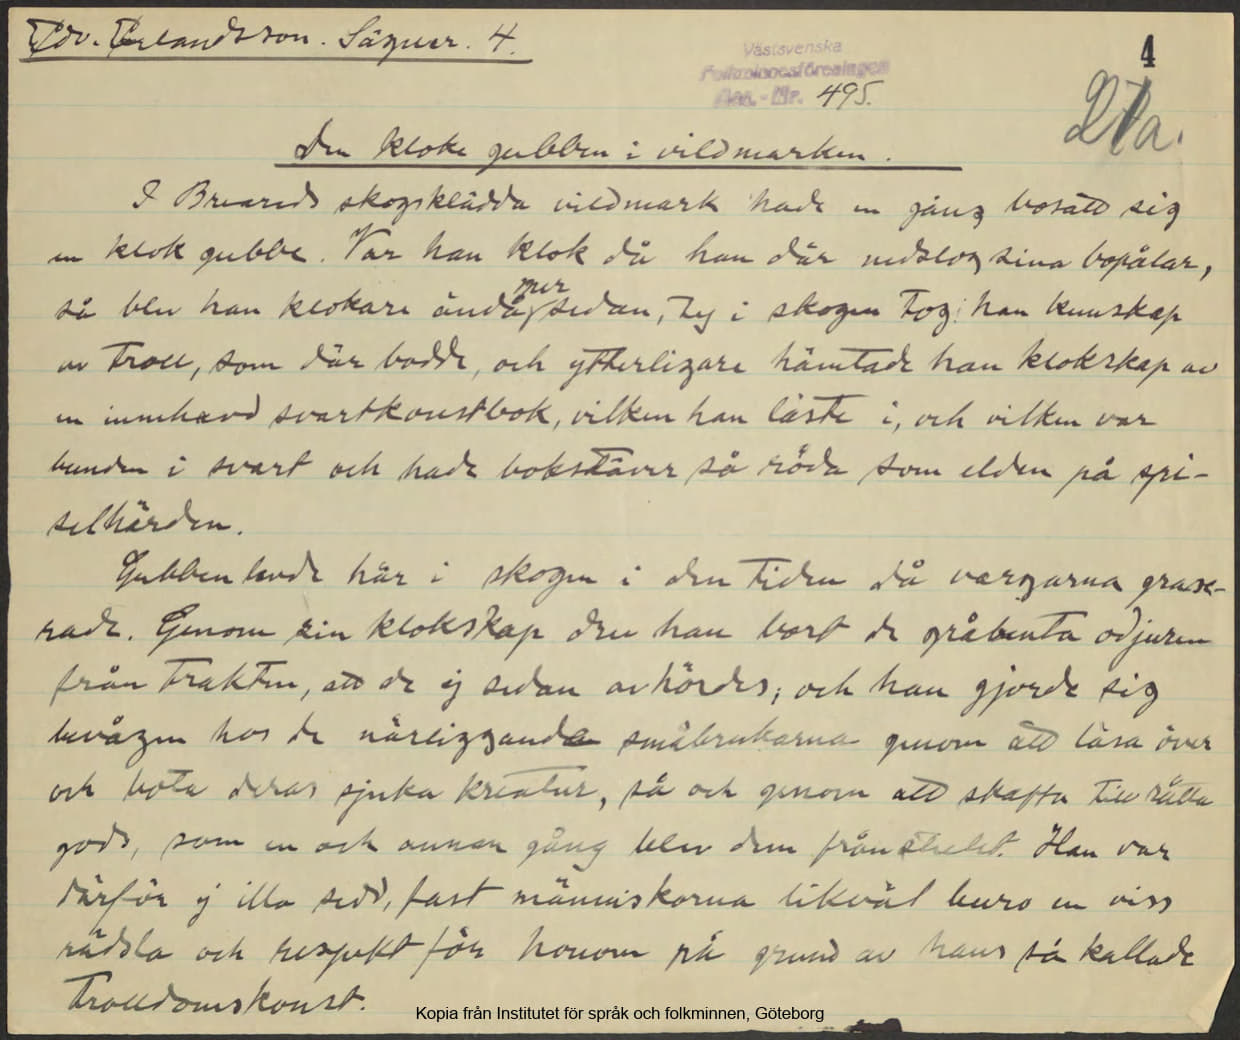 Edv. Erlandsson. Sägner. 4.
4
Västsvenska
Folkminnesföreningen
Acc.-Nr. 495.
27a.
Den kloke gubben i vildmarken.
I Breareds skogsklädda vildmark hade en gång bosatt sig
en klok gubbe. Var han klok då han där nedslog sina bopålar,
så blev han klokare ändå mer sedan, ty i skogen tog han kunskap
av troll, som där bodde, och ytterligare hämtade han klokskap av
en innehavd svartkonstbok, vilken han läste i, och vilken var
bunden i svart och hade bokstäver så röda som elden på spi-
selhärden.
Gubben levde här i skogen i den tiden då vargarna grasse-
rade. Genom sin klokskap drev han bort de gråbenta odjuren
från trakten, att de ej sedan avhördes; och han gjorde sig
bevågen hos de närliggande småbrukarna genom att läsa över
och bota deras sjuka kreatur, så och genom att skaffa till rätta
gods, som en och annan gång blev dem frånstulet. Han var
därför ej illa sedd, fast människorna likväl buro en viss
rädsla och respekt för honom på grund av hans så kallade
trolldomskonst.
Kopia från Institutet för språk och folkminnen, Göteborg